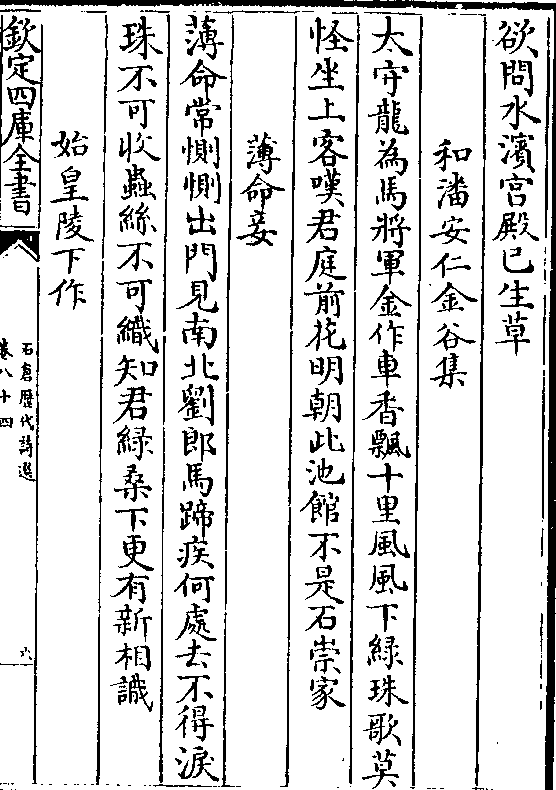 欲問水濱宫殿已生草
和潘安仁金谷集
大守龍為馬將軍金作車香飄十里風風下緑珠歌莫
怪坐上客嘆君庭前花明朝此池館不是石崇家
薄命妾
薄命常惻惻出門見南北劉郎馬蹄疾何處去不得淚
珠不可收蟲絲不可織知君緑桑下更有新相識
始皇陵下作
欽定四庫全書
石倉歷代詩選
卷八十四
六